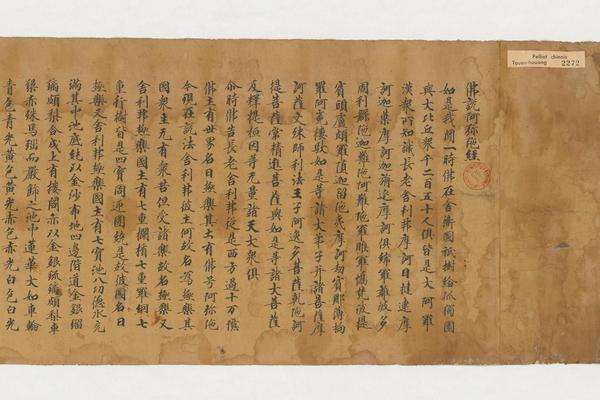 Pelliot chinois
Touen-houang 2272
佛說阿弥陁経
如是我聞一時佛在舍衛國祇樹給孤獨園
與大比丘衆千二百五十人俱皆是大阿羅
漢衆所知識長老舍利弗摩訶目揵連摩
訶迦葉摩訶迦旃延摩訶俱絺羅離婆多
周利槃陁迦難陁阿難陁羅睺羅憍梵波提
賓頭盧頗羅墮迦留陁夷摩訶劫賓那薄拘
羅阿㝹樓馱如是等諸大弟子并諸菩薩摩
訶薩文殊師利法王子阿逸多菩薩乾陁訶
提菩薩常精進菩薩與如是等諸大菩薩
及釋提桓因等无量諸天大衆俱
尒時佛告長老舍利弗從是西方過十万億
佛土有世界名曰極樂其土有佛号阿弥陁
今現在說法舍利弗彼土何故名爲極樂其
國衆生无有衆苦但受諸樂故名極樂又
舍利弗極樂國土有七重欄楯七重羅網七
重行樹皆是四寶周迊圍繞是故彼國名曰
極樂又舍利弗極樂國土有七寶池八功德水充
滿其中池底純以金沙布地四邊階道金銀瑠
璃頗梨合成上有樓閣亦以金銀瑠璃頗梨車
璖赤珠馬瑙而嚴飾之池中蓮華大如車輪
青色青光黃色黃光赤色赤光白色白光